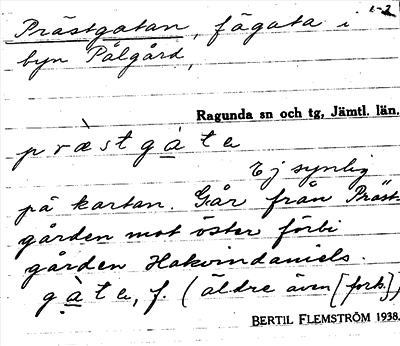 1-2
Prästgatan, fägata i
byn Pålgård,
Ragunda sn och tg, Jämtl. län.
præ̀stgạ̀ta
Ej synlig
på kartan. Går från Präst-
gården mot öster förbi
gården Hakvindaniels.
gạ̀ta, f. (äldre även [fork.])
BERTIL FLEMSTRÖM 1938.